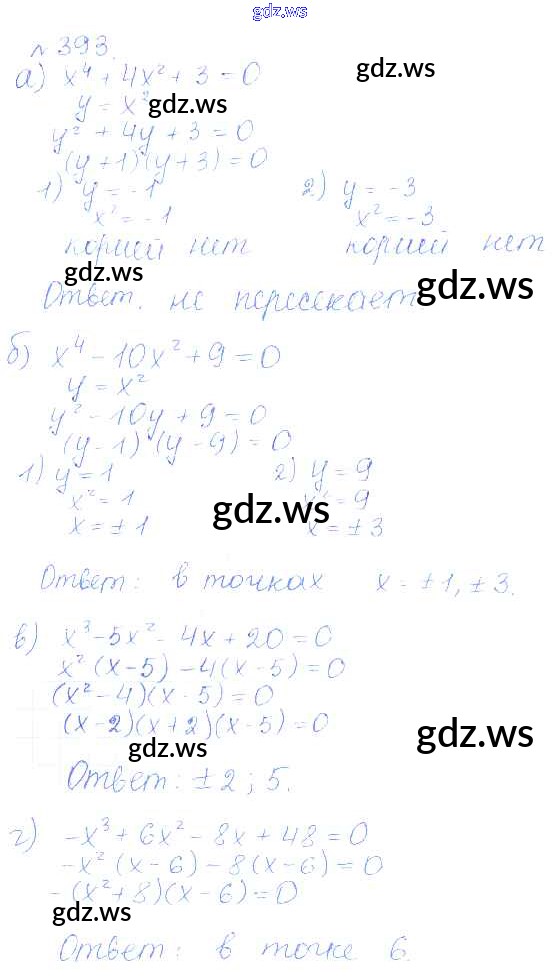 gdz.ws
№ 393.
а) x⁴ + 4x² + 3 = 0
gdz.ws
y = x²
gdz.ws
y² + 4y + 3 = 0
(y+1)(y+3) = 0
1) y = -1 2) y = -3
x² = -1 x² = -3
корней нет корней нет
gdz.ws gdz.ws
Ответ. не пересекает.
б) x⁴ - 10x² + 9 = 0
y = x²
y² - 10y + 9 = 0
(y-1)(y-9) = 0
1) y = 1 2) y = 9
x² = 1 x² = 9
gdz.ws
x = ±1 x = ±3
Ответ: в точках x = ±1, ±3.
в) x³ - 5x² - 4x + 20 = 0
x²(x-5) - 4(x-5) = 0
(x²-4)(x-5) = 0
(x-2)(x+2)(x-5) = 0
gdz.ws gdz.ws
Ответ: ±2; 5.
г) -x³ + 6x² - 8x + 48 = 0
-x²(x-6) - 8(x-6) = 0
-(x²+8)(x-6) = 0
gdz.ws
Ответ: в точке 6.